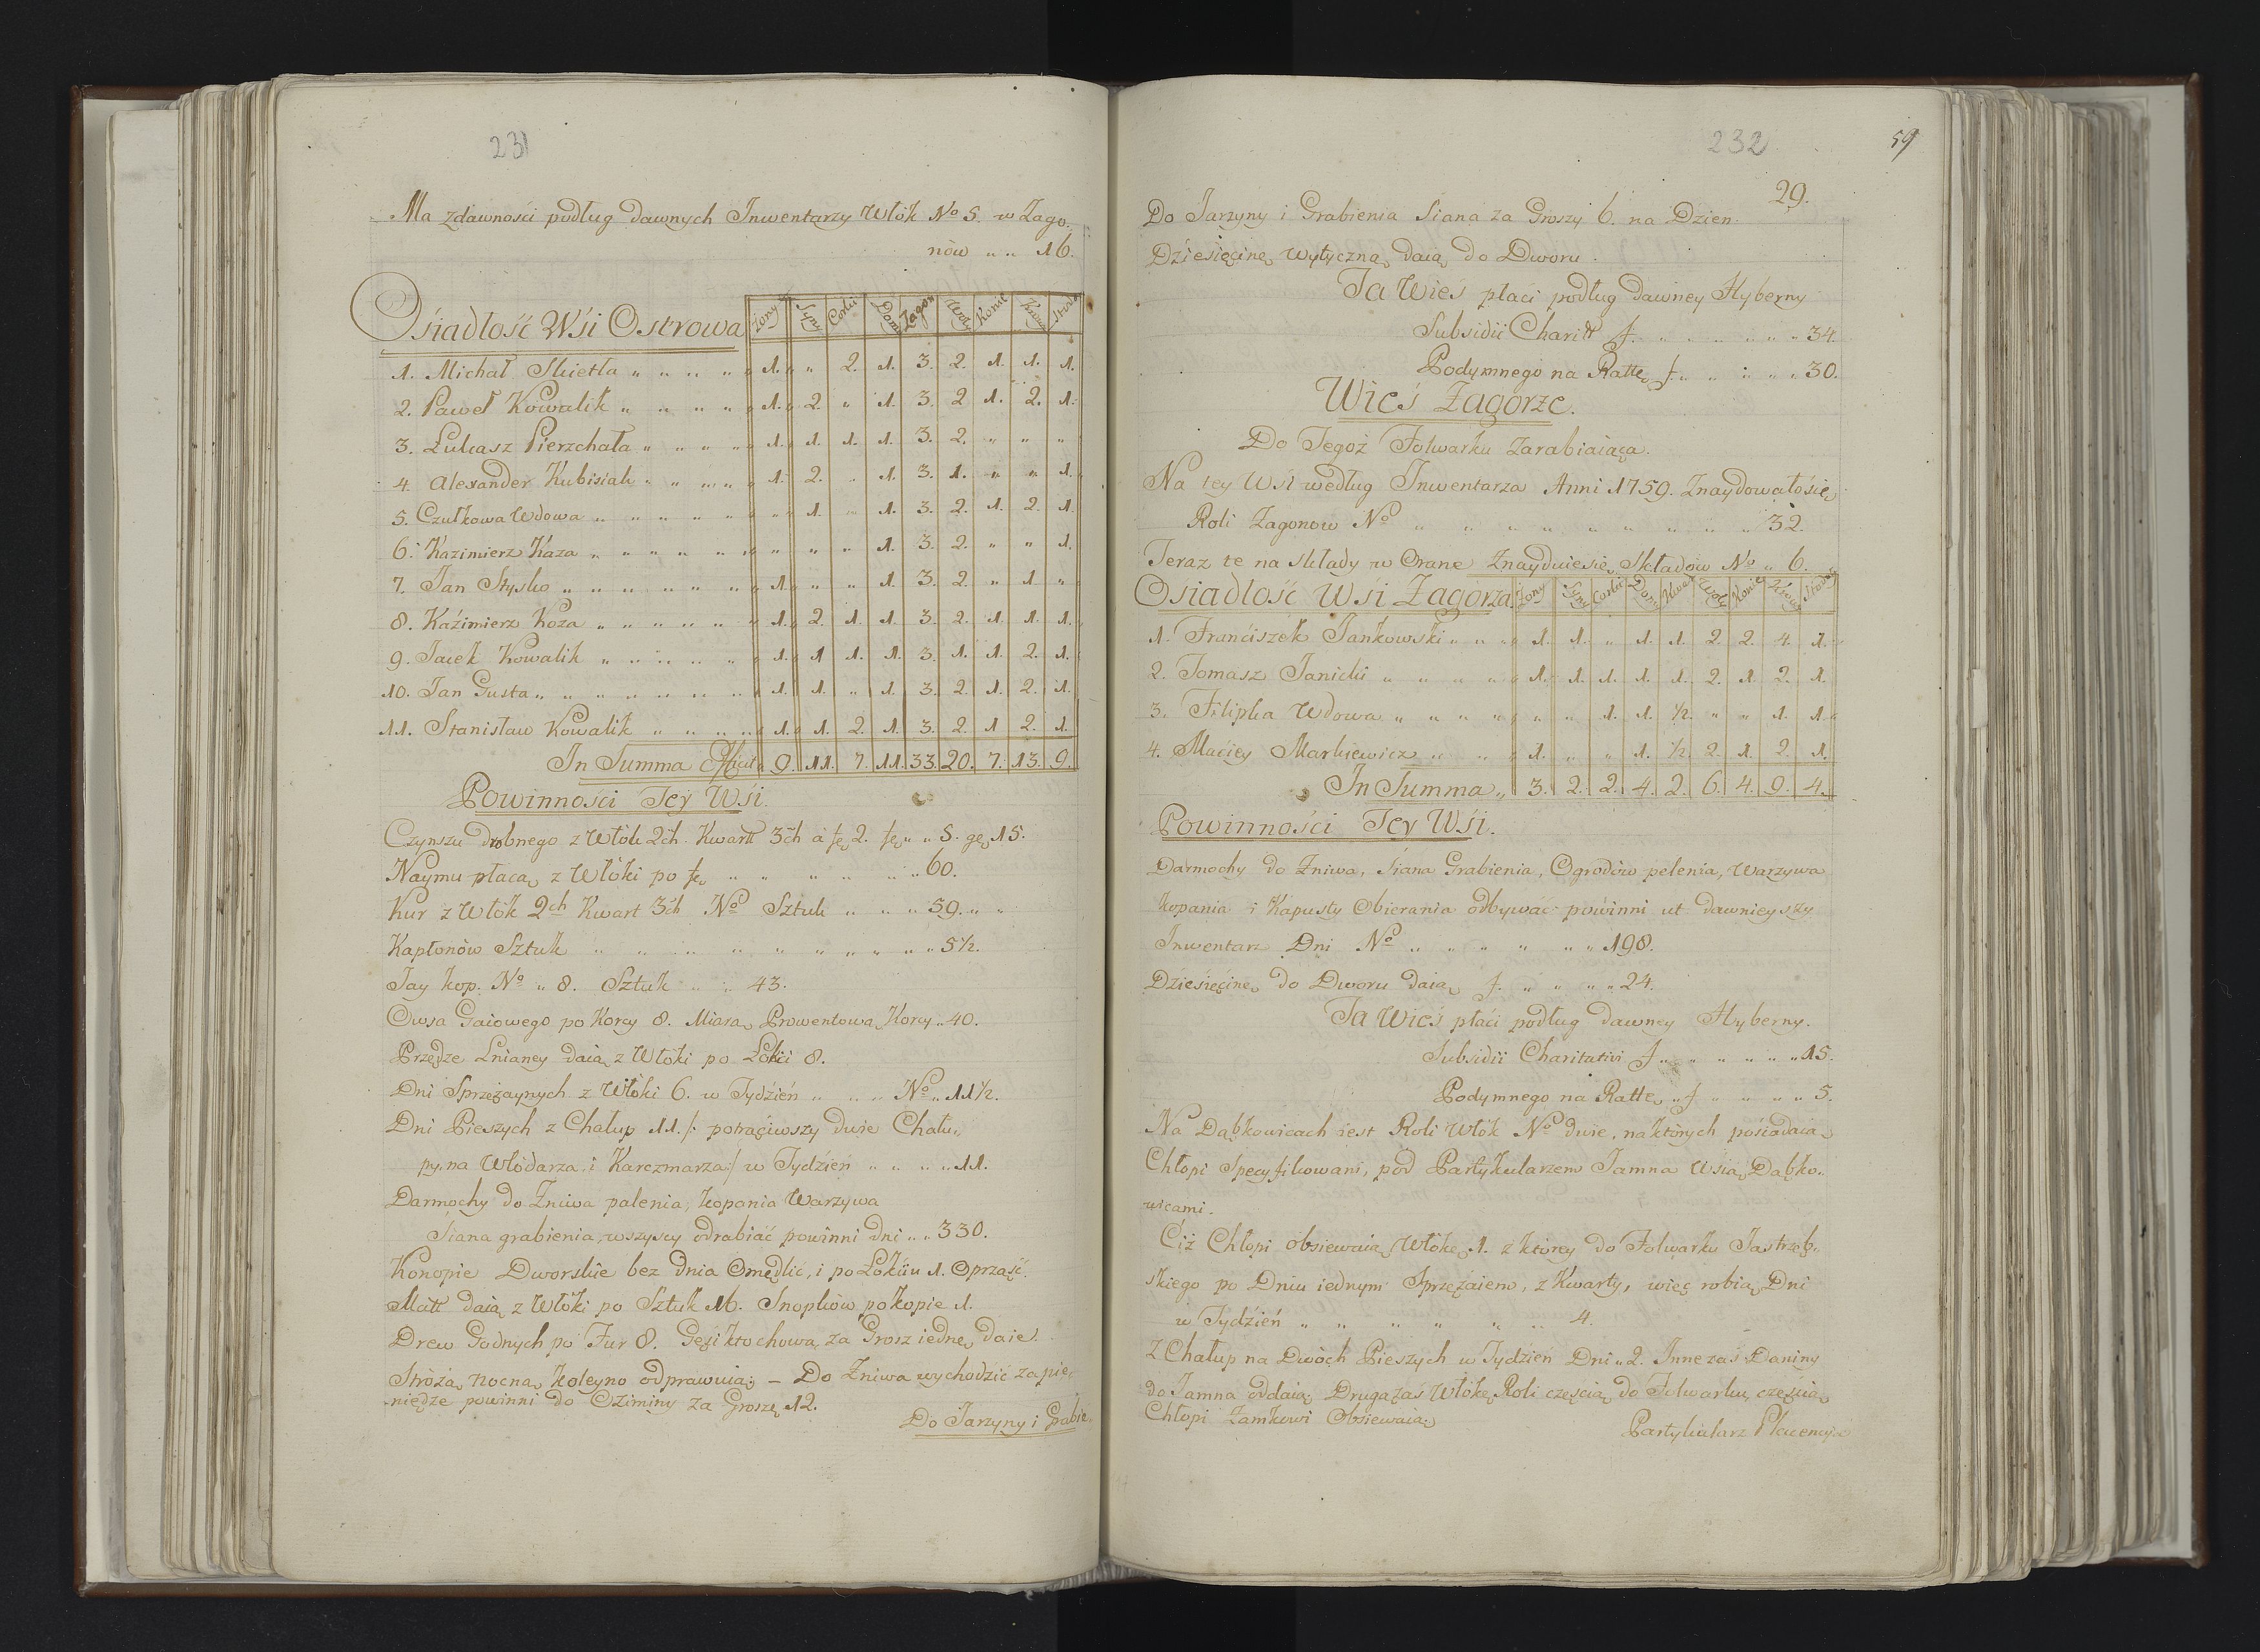 231
Ma zdawności podług dawnych Inwentarzy Włók No 5. w Zago„
nów „ „ 16.
Osiadłość Wśi Ostrowa Żony Syny Corki Domy Zagony Woły Konie Krowy
1. Michał Skietla „ „ „ „ 1. „ 2. 1. 3. 2. 1. 1. 1.
2. Paweł Kowalik „ „ „ „ 1. 2. „ 1. 3. 2 1. 2. 1.
3. Łukasz Pierzchała „ „ „ „ 1. 1. 1. 1. 3. 2. „ „ „
4. Alexander Kubisiak „ „ „ „ 1. 2. „ 1. 3. 1. „ „ 1.
5. Czułkowa Wdowa „ „ „ „ „ „ 1. „ 1. 3. 2. 1. 2. 1.
6. Kazimierz Kaza „ „ „ „ „ „ „ „ 1. 3. 2. „ „ 1.
7. Jan Stysko „ „ „ „ „ „ 1. „ „ 1. 3. 2. „ 1 „
8. Kaźimierz Koza „ „ „ „ „ 1. 2. 1. 1. 3. 2. 1. 1. 1.
9. Jacek Kowalik „ „ „ „ „ 1. 1 1. 1. 3. 1. 1. 2. 1.
10. Jan Gusta „ „ „ „ „ „ „ 1. 1. „ 1. 3. 2. 1. 2. 1.
11. Stanisław Kowalik „ „ „ „ 1. 1. 2. 1. 3. 2. 1 2. 1.
In Summa Efficit 9. 11. 7. 11. 33. 20. 7. 13. 9.
Powinności Tey Wśi.
Czynszu drobnego z Włók 2ch Kwart 3ch à 2. „ „ 5. 15.
Naymu płacą z Włóki po „ „ „ „ „ 60.
Kur z Włók 2ch Kwart 3ch No Sztuk „ „ „ 59. „ „
Kapłonów Sztuk „ „ „ „ „ „ „ „ „ 5½.
Jay kop. No „ 8. Sztuk „ „ 43.
Owsa Gaiowego po Korcy 8. Miarą Prowentową Korcy „ 40.
Przędze Lnianey daią z Włóki po Łokci 8.
Dni Sprzężaynych z Włóki 6. w Tydźień „ „ „ No „ 11½.
Dni Pieszych z Chałup 11. /: potrąciwszy dwie Chału„
py, na Włódarza i Karczmarza :/ w Tydźień „ „ „ „ 11.
Darmochy do Żniwa palenia, kopania Warzywa
Śiana grabienia, wszyscy odrabiać powinni dni „ „ 330.
Konopie Dworskie bez dnia Omędlić, i po Łokćiu 1. Oprząść.
Matt daią z Włóki po Sztuk 16. Snopków po kopie 1.
Drew Godnych po Fur 8. Gęśi ktochową za Grosz iednę daie.
Stróżą nocną koleyno odprawuią, – Do Żniwa wychodzić za pie„
niędze powinni do Oziminy za Groszy 12.
Do Jarzyny i Grabie„
232
59
29.
Do Jarzyny i Grabienia Siana za Groszy 6. na Dzien.
Dźiesięcinę wytyczną daią do Dworu.
Ta Wieś płaci podług dawney Hyberny
Subsidii Charitt f. „ „ „ „ „ „ 34.
Podymnego na Rattę f. „ „ „ „ „ 30.
Wieś Zagorze.
Do Tegoż Folwarku Zarabiaiąca.
Na tey Wśi według Inwentarza Anni 1759. Znaydowało się
Roli Zagonow No „ „ „ „ „ „ „ „ „ 32.
Teraz te na składy w Orane Znayduie się Składów No „ 6.
Osiadłość Wśi Zagorza. Żony Syny Corki Domy Kwart Woły Konie Krowy
1. Franćiszek Jankowski „ „ „ 1. 1. „ 1. 1. 2. 2. 4. 1.
2. Tomasz Janicki „ „ „ „ 1. 1. 1. 1. 1. 2. 1. 2. 1.
3. Filipka Wdowa „ „ „ „ „ „ 1. 1. ½. „ „ 1. 1.
4. Maćiey Markiewicz „ „ „ 1. „ „ 1. ½. 2. 1. 2. 1.
In Summa „ 3. 2. 2. 4. 2. 6. 4. 9. 4.
Powinności Tey Wśi.
Darmochy do Żniwa, Śiana Grabienia, Ogrodów pelenia, Warzywa
kopania i Kapusty Obierania odbywać powinni ut dawnieyszy
Inwentarz Dni No „ „ „ „ „ „ 198.
Dźiesięćinę do Dworu daią f. „ „ „ „ 24.
Ta Wieś płaći podług dawney Hyberny.
Subsidii Charitativi f „ „ „ „ „ „ 15.
Podymnego na Rattę „ f „ „ „ „ 5.
Na Dąbkowicach iest Roli Włók No dwie, na których pośiadaią
Chłopi Specyfikowani, pod Partykularzem Jamna Wśią Dąbko„
wicami.
Ćiż Chłopi obsiewaią Włókę 1. z którey do Folwarku Jastrzęb„
skiego po Dniu iednym Sprzężaiem, z Kwarty, więc robią Dni
w Tydźień „ „ „ „ „ „ 4.
Z Chałup na Dwóch Pieszych w Tydzień Dni „ 2. Inne zaś Daniny
do Jamna oddaią; Drugą zaś Włókę Roli częścią do Folwarku, częścią
Chłopi Zamkowi Obsiewaią.
Partykularz